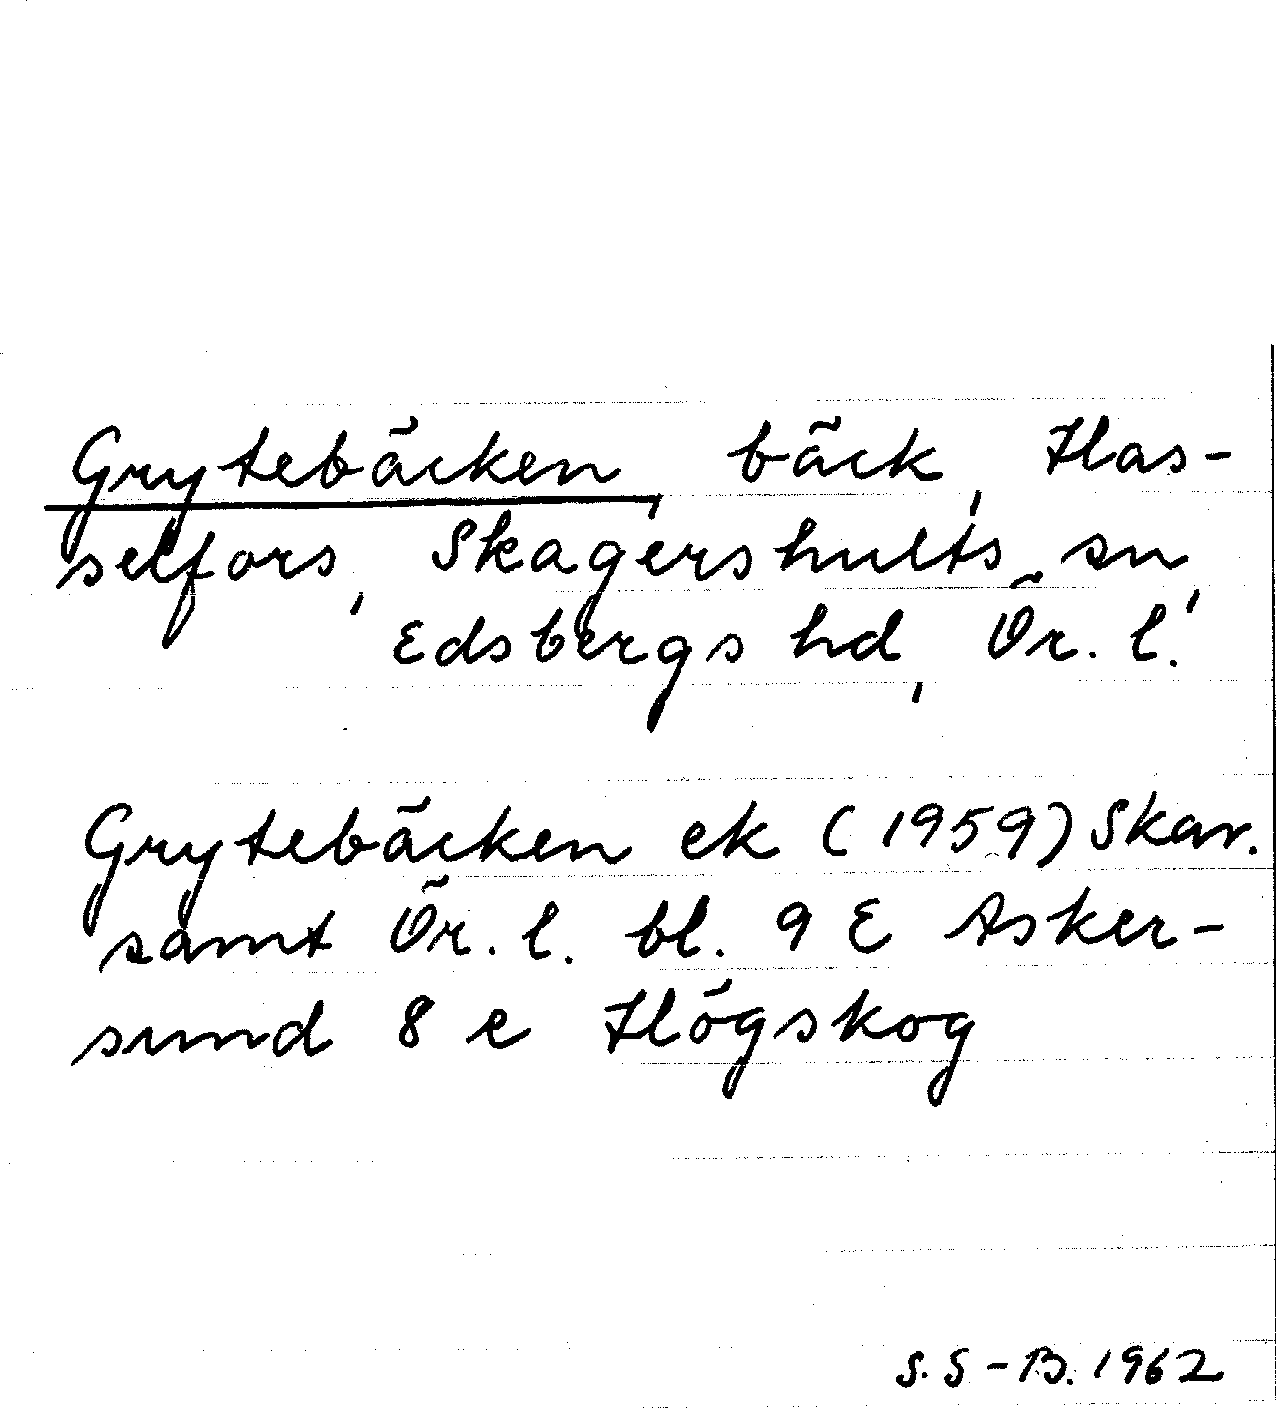 Grytebäcken, bäck, Has-
selfors, Skagershults sn,
Edsbergs hd, Ör. l.
Grytebäcken ek (1959) Skar.
samt Ör. l. bl. 9 E Asker-
sund 8 e Högskog
S. S-B. 1962